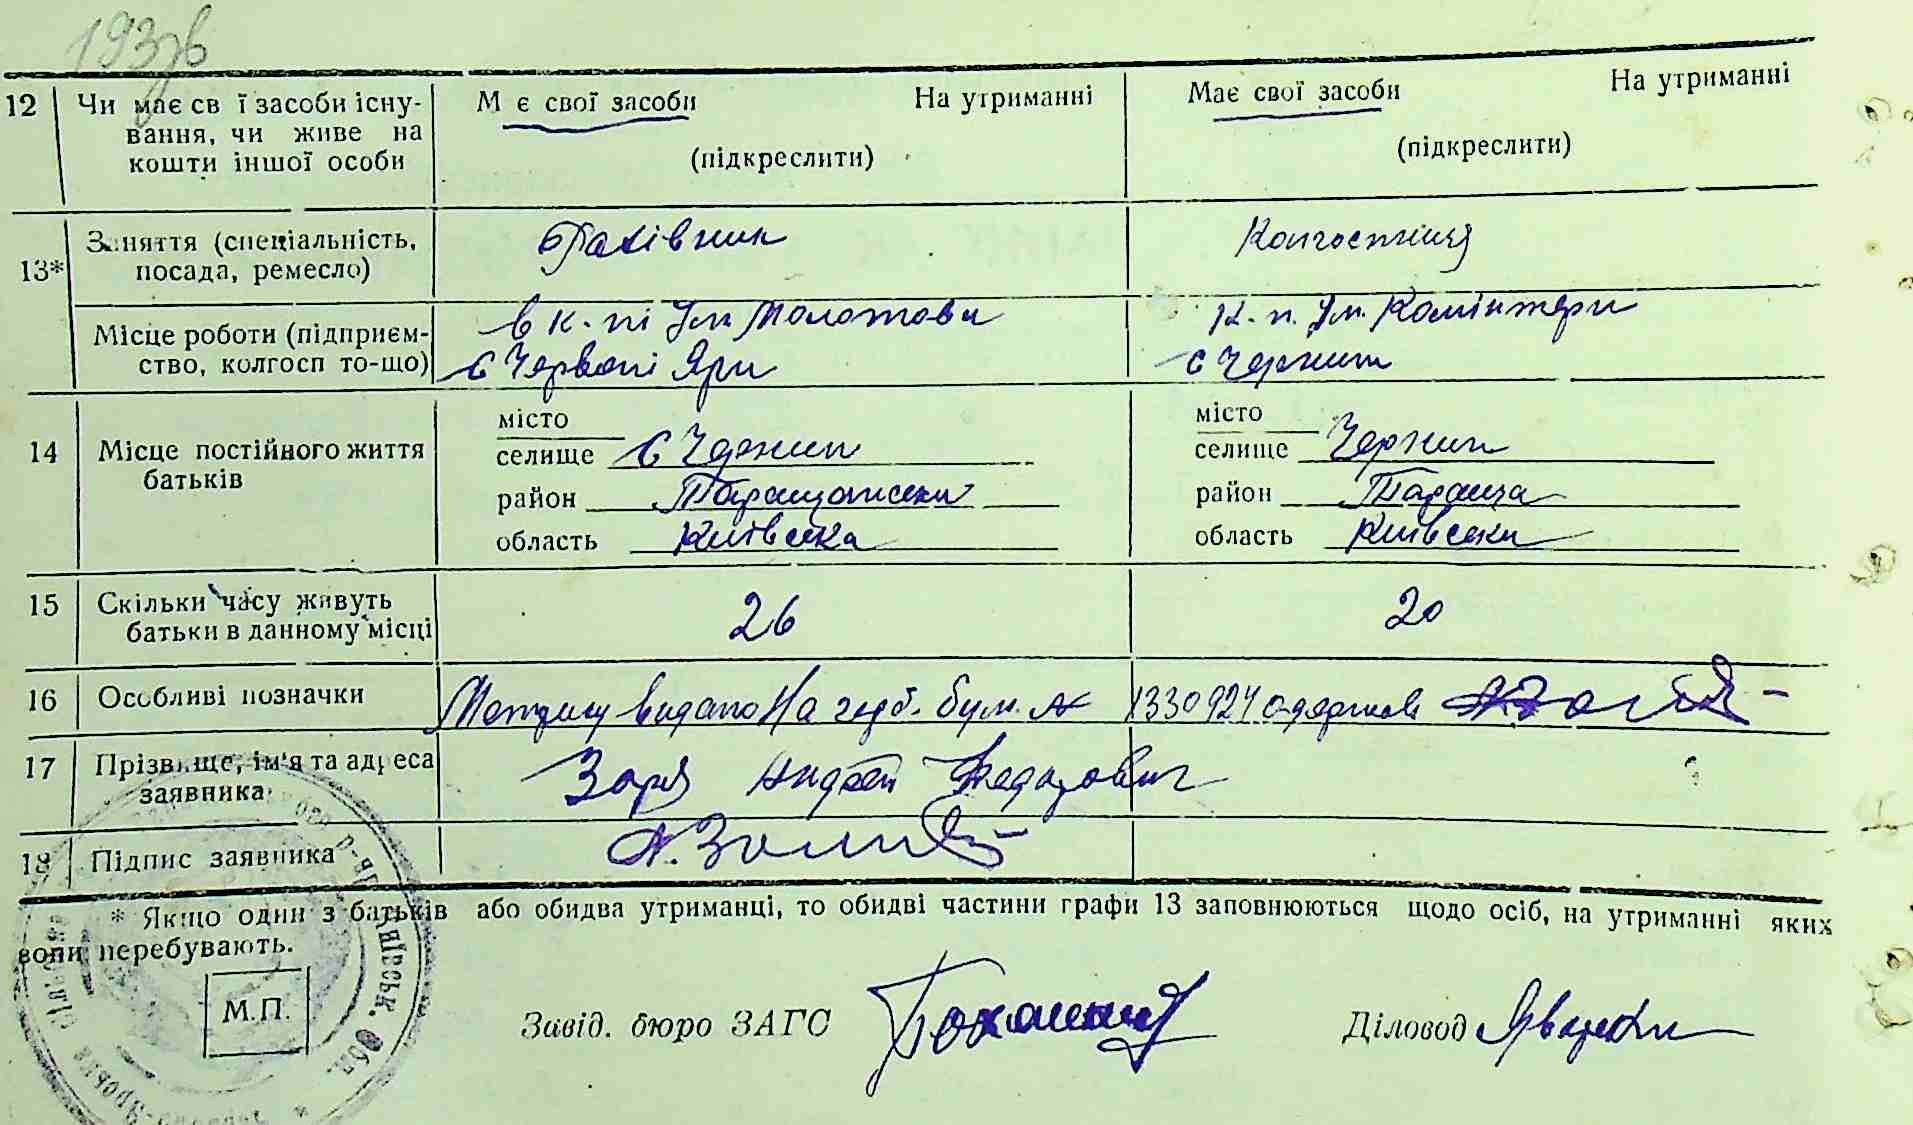 1937в
12 Чи має св ї засоби існу- М є свої засоби На утриманні Має свої засоби На утриманні
вання, чи живе на
кошти іншої особи (підкреслити) (підкреслити)
13* Заняття (спеціальність, Рахівник Колгоспниця
посада, ремесло)
Місце роботи (підприєм- в к-пі Ім Молотова К-п. Ім. Комінтерн
ство, колгосп то-що) с Червоні Яри с Чернин
14 Місце постійного життя батьків
місто місто
селище с Чернин селище Чернин
район Таращанськи район Тараща
область Київська область Київськи
15 Скільки часу живуть 26 20
батьки в данному місці
16 Особливі позначки видано На герб. бум. № 1330924 одержав
17 Прізвище, ім'я та адреса Заря Андрей Федорович
заявника
18 Підпис заявника
* Якщо один з батьків або обидва утриманці, то обидві частини графи 13 заповнюються щодо осіб, на утриманні яких
вони перебувають.
М.П.
Завід. бюро ЗАГС Діловод